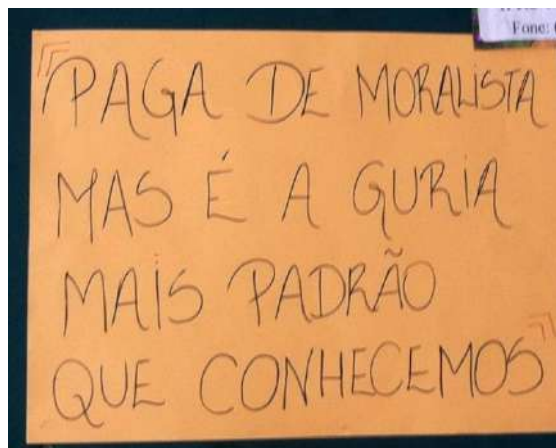 Fone:
"PAGA DE MORALISTA
MAS É A GURIA
MAIS PADRÃO
QUE CONHECEMOS"